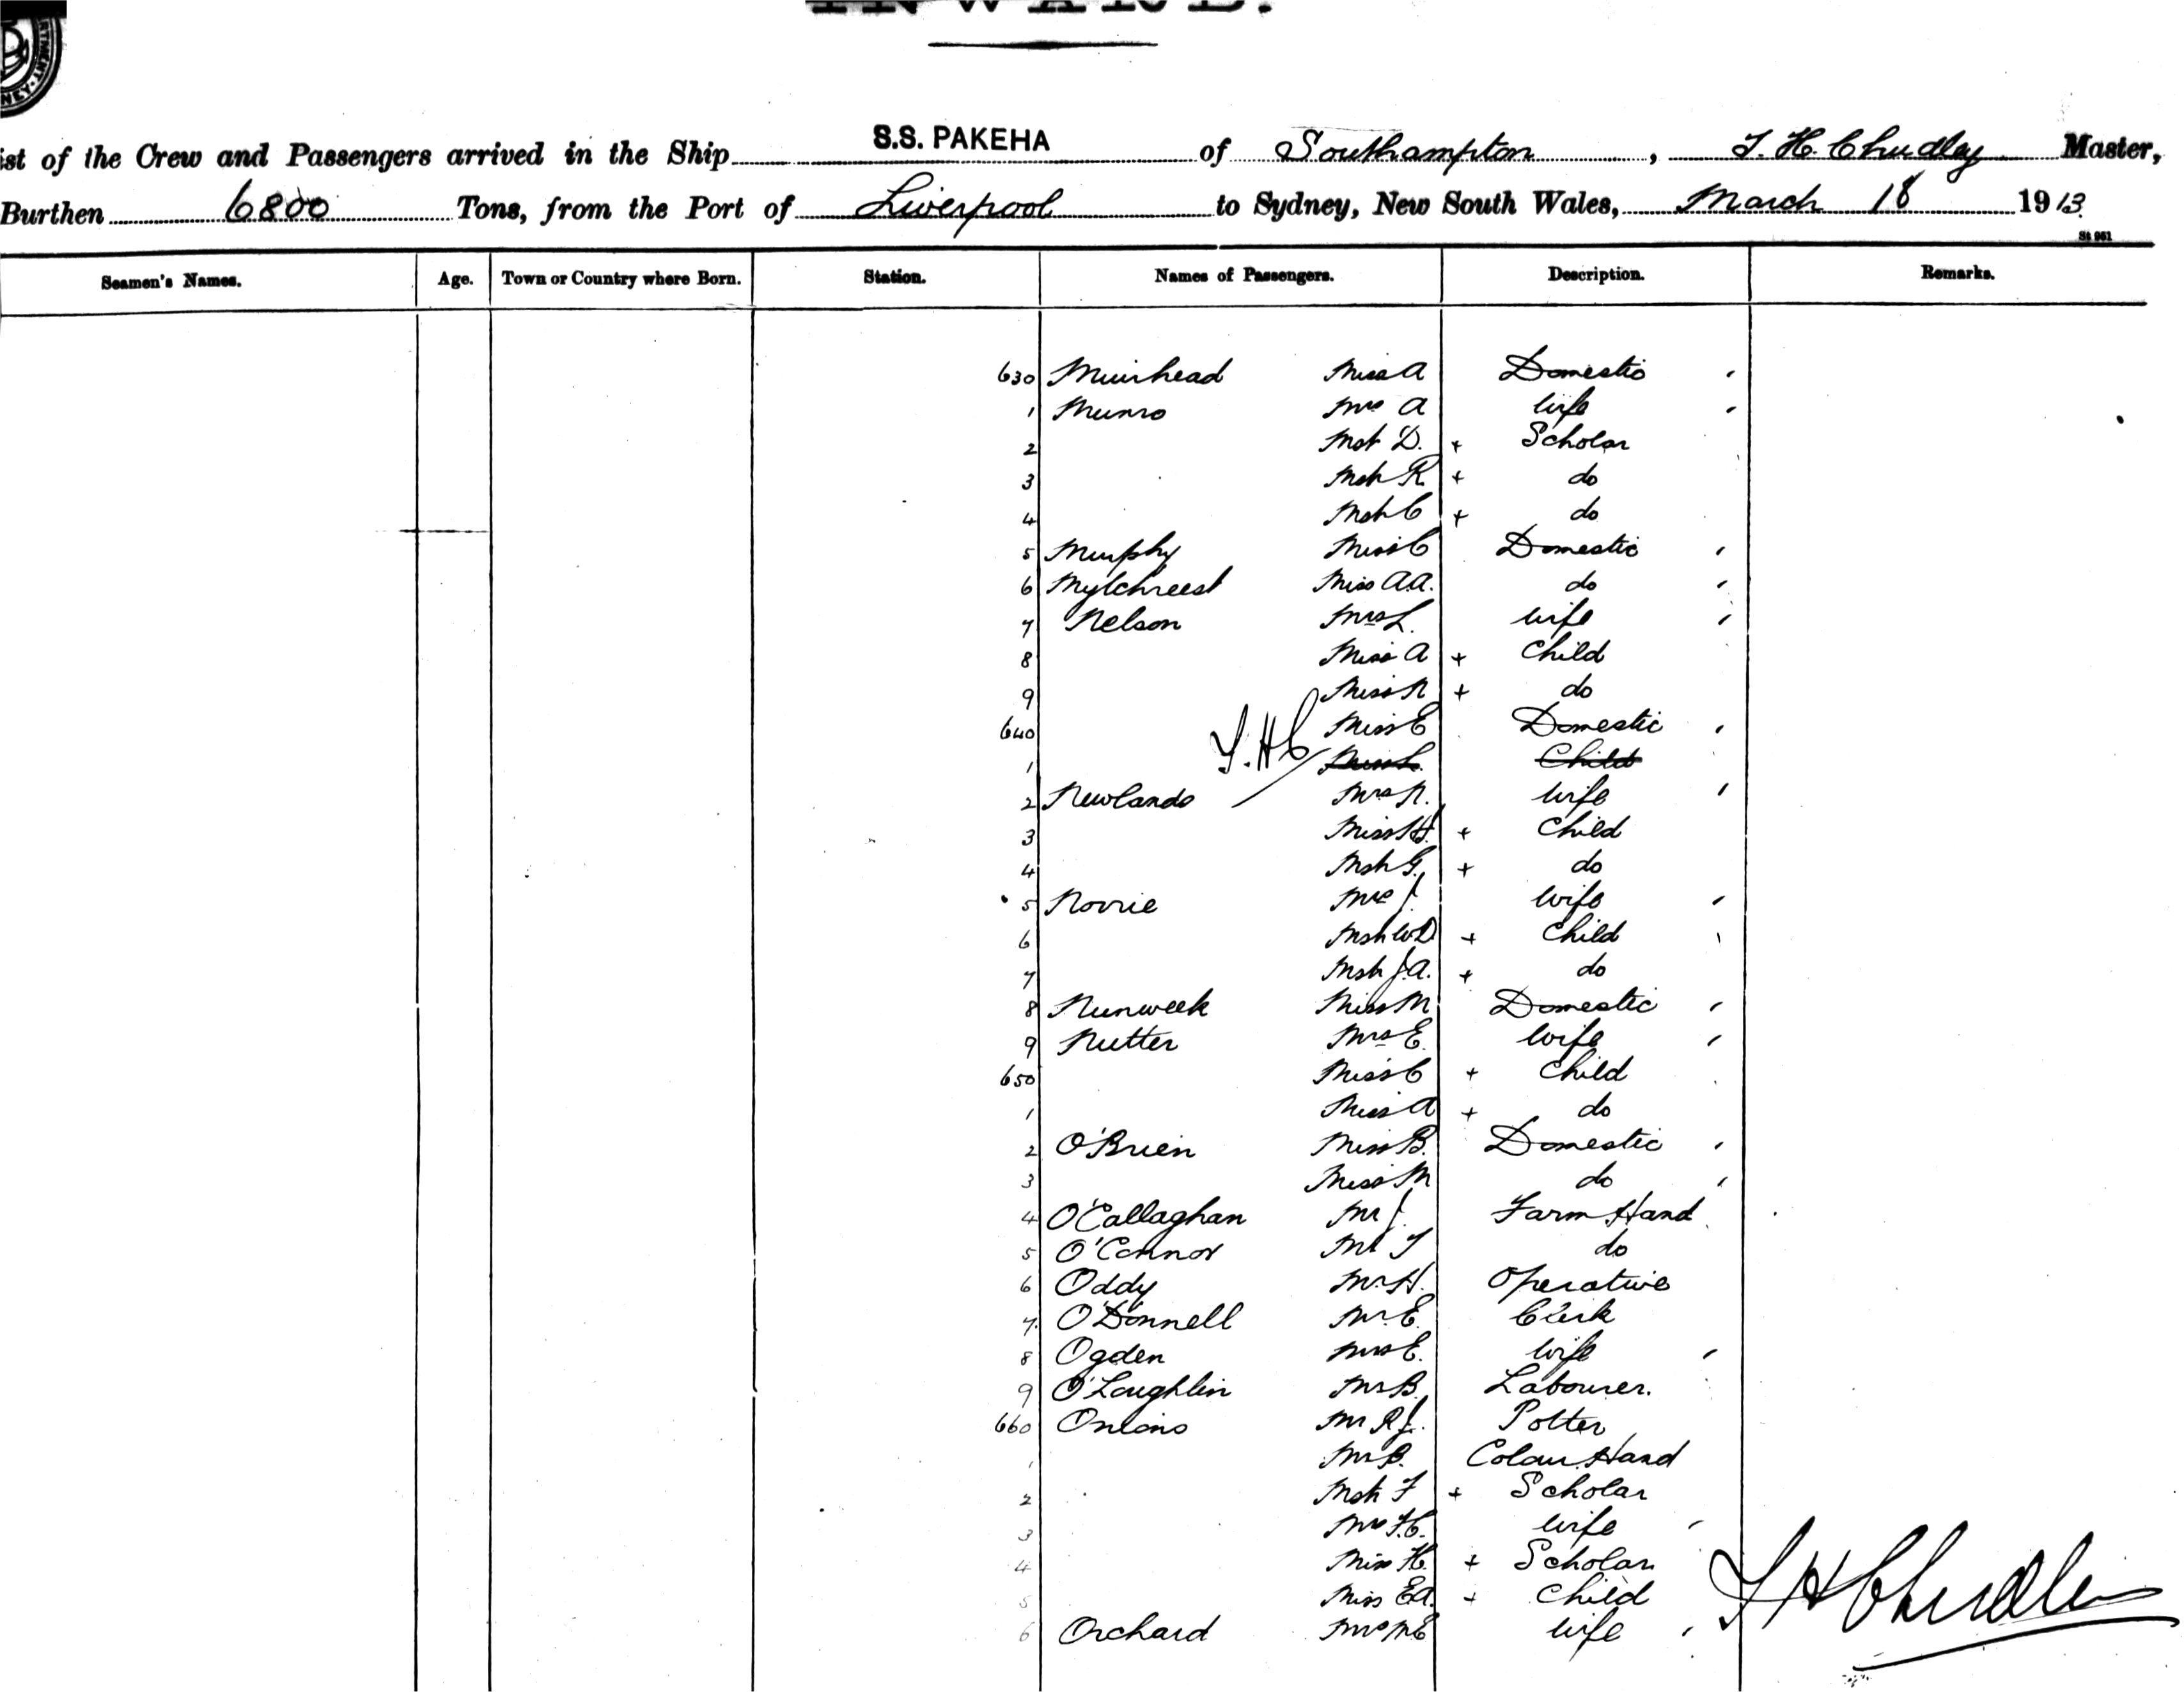 INWARD.
ist of the Crew and Passengers arrived in the Ship S.S. PAKEHA of Southampton, T. H. Chudley Master,
Burthen 6800 Tons, from the Port of Liverpool to Sydney, New South Wales, March 18 1913
St 961
Seamen's Names. Age. Town or Country where Born. Station. Names of Passengers. Description. Remarks.
630 Muirhead Miss A Domestic
1 Munro Mrs A wife
2 Mstr D. + Scholar
3 Mstr R + do
4 Mstr C + do
5 Murphy Miss C Domestic
6 Mylchreest Miss A.A. do
7 Nelson Mrs L. wife
8 Miss A + Child
9 Miss N + do
640 Miss E Domestic
1 T.H.C Miss L. Child
2 Newlands Mrs N. wife
3 Miss H. + Child
4 Mstr G. + do
5 Norrie Mrs J. wife
6 Mstr W.D + Child
7 Mstr J.A. + do
8 Nunweek Miss M Domestic
9 Nutter Mrs E. wife
650 Miss C + Child
1 Miss A + do
2 O'Brien Miss B. Domestic
3 Miss M do
4 O'Callaghan Mr J. Farm Hand
5 O'Connor Mr T do
6 Oddy Mr H. Operative
7 O'Donnell Mr E. Clerk
8 Ogden Mrs E. wife
9 O'Loughlin Mr B. Labourer.
660 Onions Mr R.J. Potter
1 Mr B. Colour Hand
2 Mstr F + Scholar
3 Mrs F.C. wife
4 Miss H. + Scholar
5 Miss E.A. + Child
6 Orchard Mrs M E wife
T H Chudley